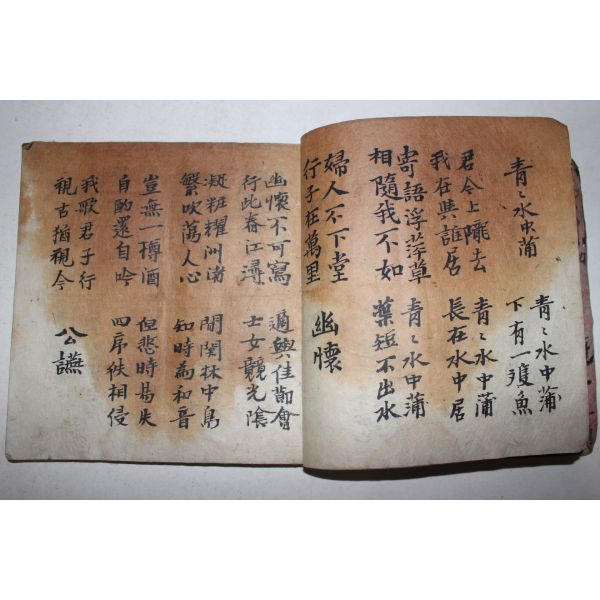 青〻水中蒲
青〻水中蒲
下有一雙魚
君今上隴去
我在與誰居
青〻水中蒲
長在水中居
寄語浮萍草
相隨我不如
青〻水中蒲
葉短不出水
婦人不下堂
行子在萬里
幽懷
幽懷不可寫
行此春江潯
適與佳節會
士女競光陰
凝粧耀洲渚
繁吹萬人心
間関林中鳥
知時為和音
豈無一樽酒
自酌還自吟
但悲時易失
四序秩相侵
我歌君子行
視古猶視今
公讌